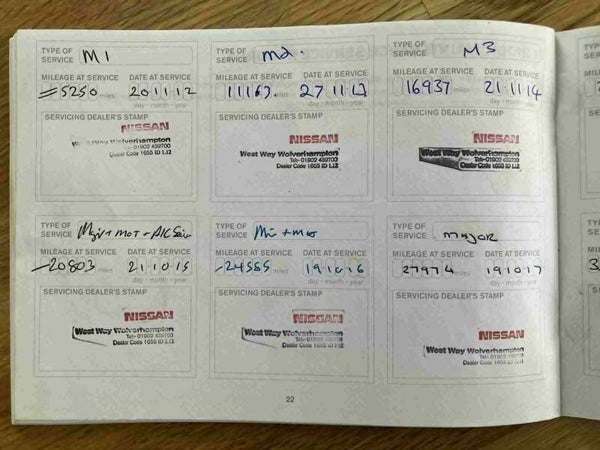 TYPE OF SERVICE M1
MILEAGE AT SERVICE DATE AT SERVICE
5250 miles 20 11 12
day - month - year
SERVICING DEALER'S STAMP
NISSAN
West Way Wolverhampton
Tel:- 01902 439700
Dealer Code 1655 ID L12
TYPE OF SERVICE M2
MILEAGE AT SERVICE DATE AT SERVICE
11167 miles 27 11 13
day - month - year
SERVICING DEALER'S STAMP
NISSAN
West Way Wolverhampton
Tel:- 01902 439700
Dealer Code 1655 ID L12
TYPE OF SERVICE M3
MILEAGE AT SERVICE DATE AT SERVICE
16937 miles 21 11 14
day - month - year
SERVICING DEALER'S STAMP
NISSAN
West Way Wolverhampton
Tel:- 01902 439700
Dealer Code 1655 ID L12
TYPE OF SERVICE + MOT + A/C
MILEAGE AT SERVICE DATE AT SERVICE
20803 miles 21 10 15
day - month - year
SERVICING DEALER'S STAMP
NISSAN
West Way Wolverhampton
Tel:- 01902 439700
Dealer Code 1655 ID L12
TYPE OF SERVICE Min + MOT
MILEAGE AT SERVICE DATE AT SERVICE
24585 miles 19 10 16
day - month - year
SERVICING DEALER'S STAMP
NISSAN
West Way Wolverhampton
Tel:- 01902 439700
Dealer Code 1655 ID L12
TYPE OF SERVICE MAJOR
MILEAGE AT SERVICE DATE AT SERVICE
27974 miles 19 10 17
day - month - year
SERVICING DEALER'S STAMP
NISSAN
West Way Wolverhampton
Tel:- 01902 439700
Dealer Code 1655 ID L12
22